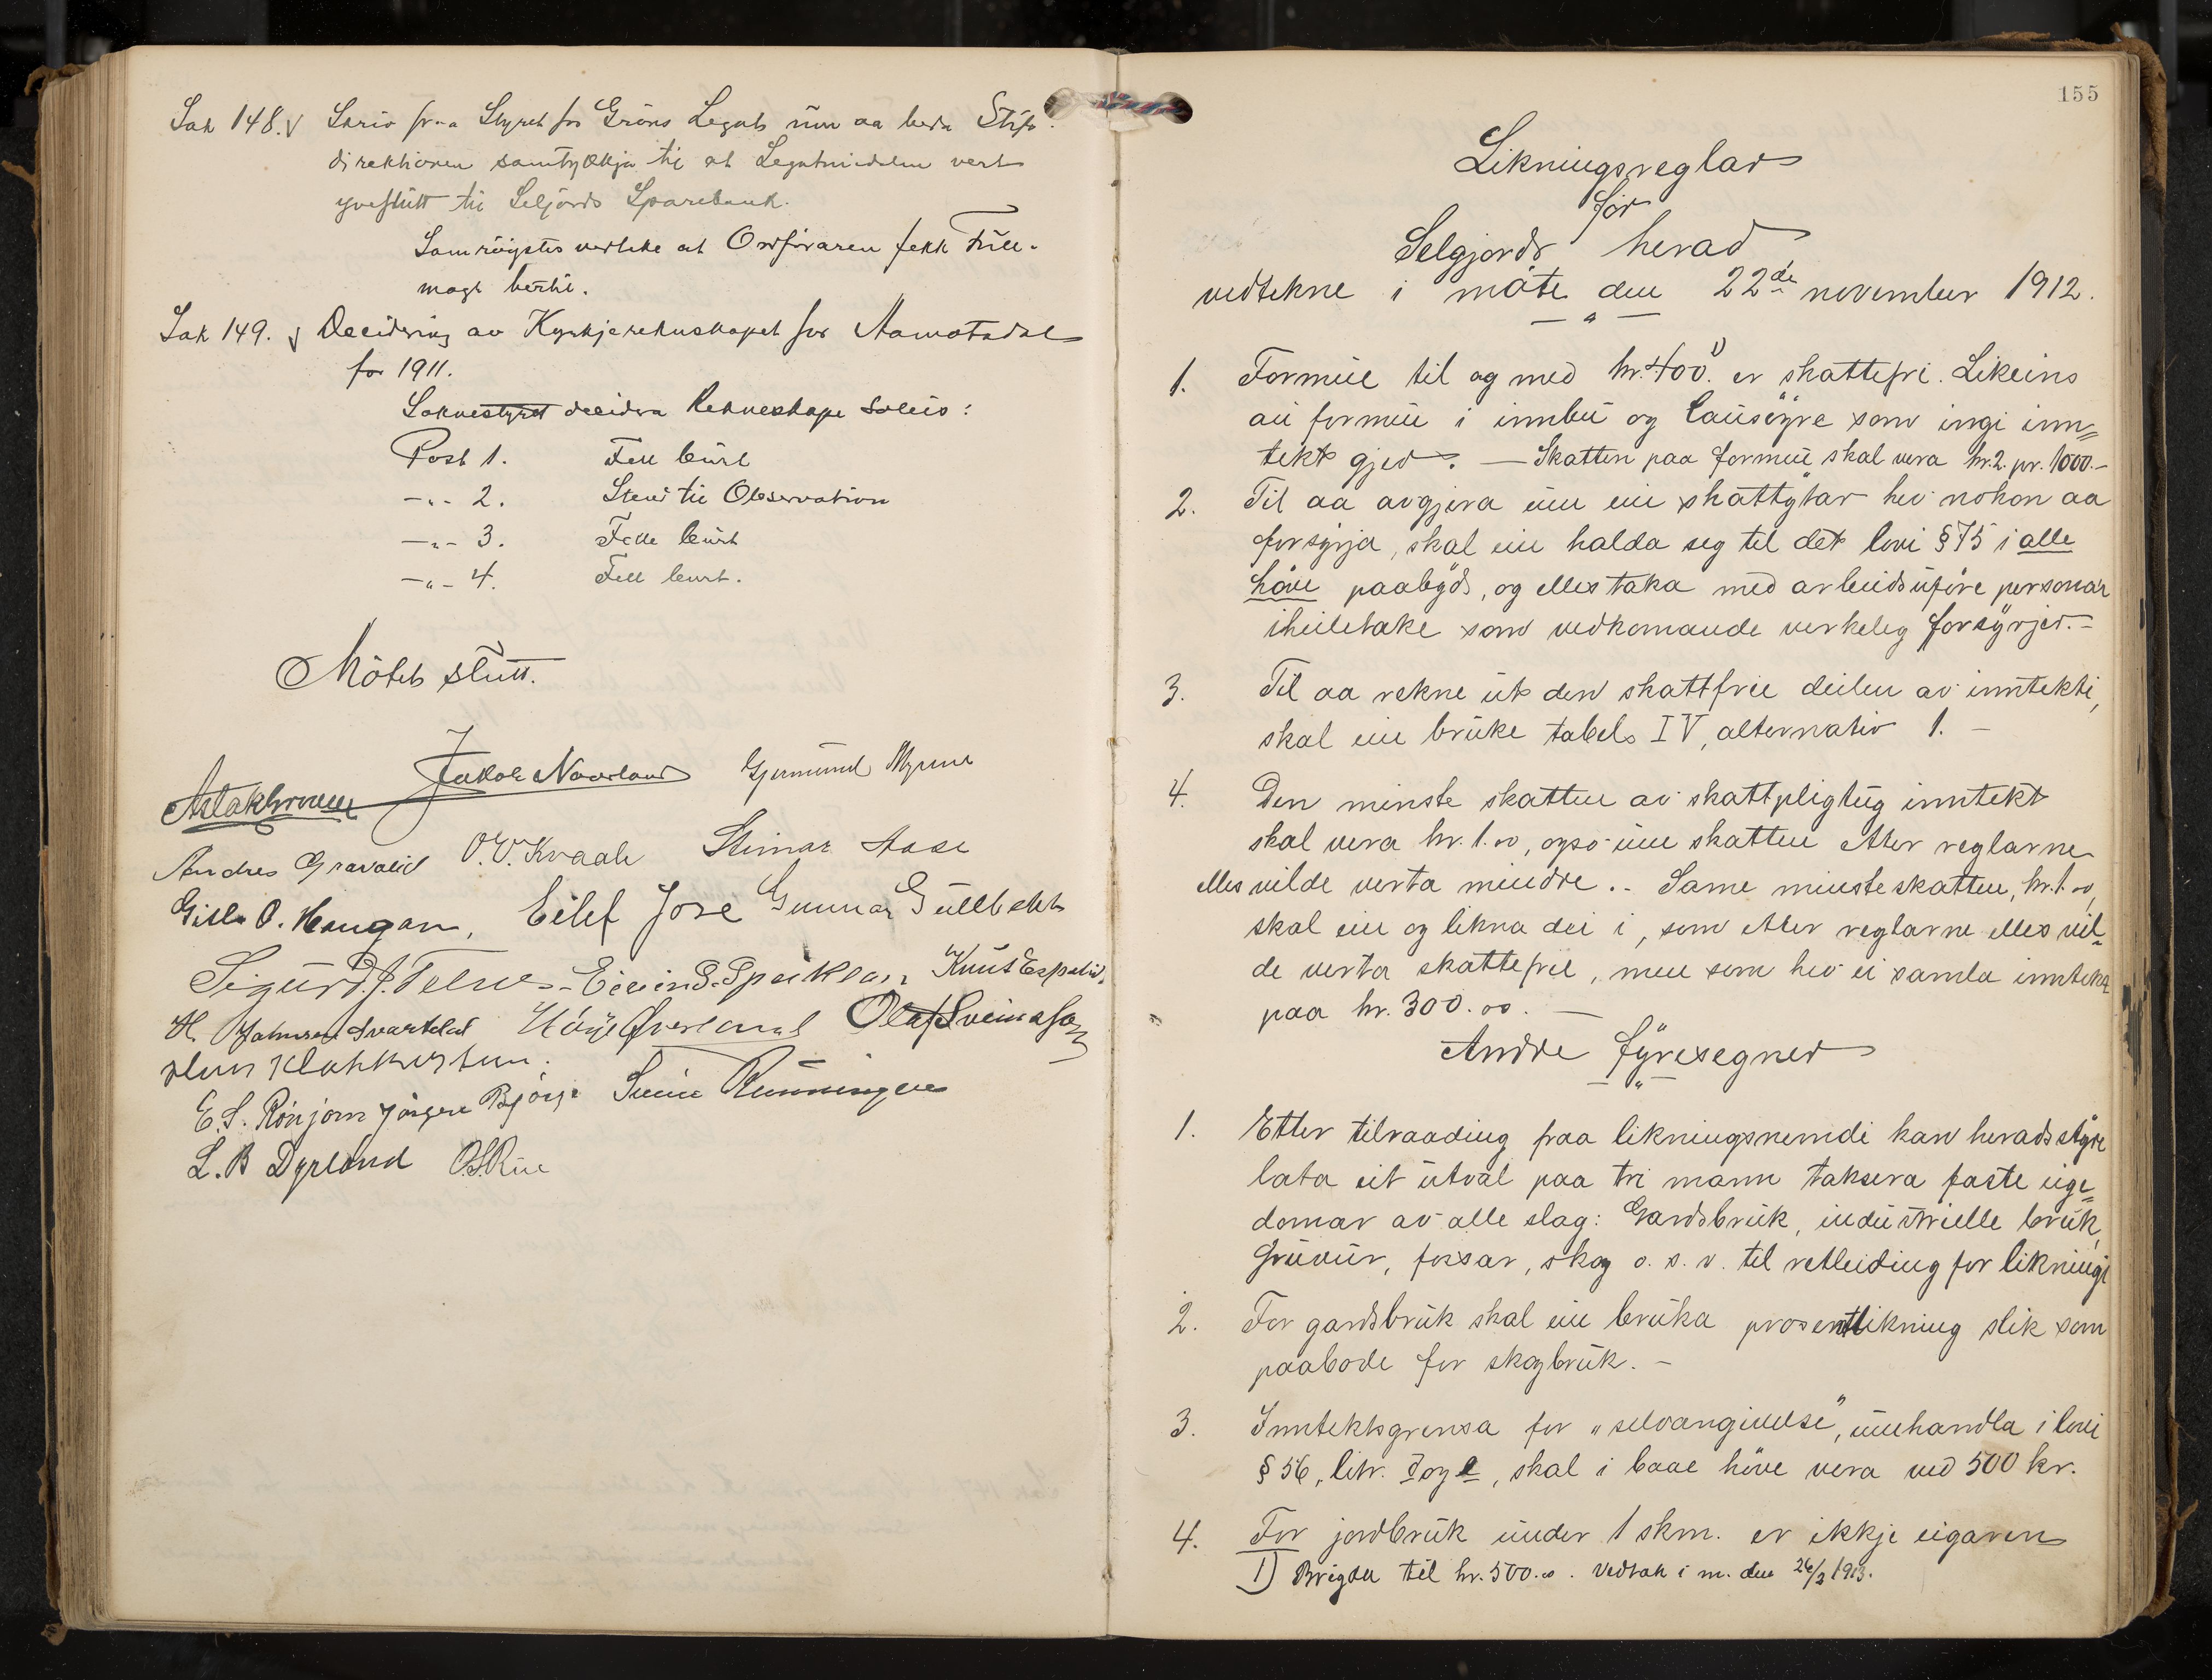 Sak 148. Skriv fraa Styret for Gröns Legat um aa beda Stifs-
direktionen samtykkja til at Legatmidalen vert
yveflutt til Seljords Sparebank.
Samröystes vedteke at Ordföraren fekk Full-
magt hertil.
Sak 149. Decidering av Kyrkjerekneskapet for Aamotsdal
for 1911.
Soknestyret decidera Rekneskape soleis:
Post 1. Fell burt
-"- 2. Stend til Observation
-"- 3. Fell burt
-"- 4. Fell burt.
Mötet slutt.
Jakob Naordland Gjermund Myrene
Andres Gravalid O.V. Kvaale Steinar Aase
Gisle O. Haugan, Eilef Jore Gunnar Gullbekk
Sigurd J. Telnes Eivind Speiklan Knut Espelid.
H. Johnsen Svartdal Olaf Sveinsson
E. S. Rönjom Jörgen Björge Svein Rünningen
L. B Dyrland O.S. Rue
155
Likningsreglar
for
Selgjords herad
vedtekne i möte den 22de november 1912.
1. Formue til og med kr. 400.1) er skattefri. Likeins
au formue i innbu og lausöyre som ingi inn=
tekt gjev. — Skatten paa formue skal vera kr. 2. pr. 1000.-
2. Til aa avgjera um ein skattytar hev nokon aa
forsyrja, skal ein halda seg til det lovi § 75 i alle
höve paabyd, og elles taka med arbeidsuföre personar
iheiletake som vedkomande verkeleg forsyrjer.-
3. Til aa rekne ut den skattfrie deilen av inntekti,
skal ein bruke tabel IV, alternativ 1. -
4. Den minste skatten av skattpligtug inntekt
skal vera kr. 1.00, ogso um skatten etter reglarne
elles vilde verta mindre. - Same minsteskatten, kr. 1.00,
skal ein og likna dei i, som etter reglarne elles vil-
de verta skattefrie, men som hev ei samla inntekt
paa kr. 300.00. —
Andre fyresegner
1. Etter tilraading fraa likningsnemdi kan heradsstyre
lata eit utval paa tri mann taksera faste eige=
domar av alle slag: Gardsbruk, industrielle bruk,
Gruvur, fossar, skog o. s. v. til retleiding for likningi
2. For gardsbruk skal ein bruka prosentlikning slik som
paabode for skogbruk. -
3. Inntektsgrensa for "selvangivelse", umhandla i lovi
§ 56, litr. d og e, skal i baae höve vera ved 500 kr.
4. For jordbruk under 1 skm. er ikkje eigaren
1) Brigda til kr. 500.00. Vedtak i m. den 26/3 1913.